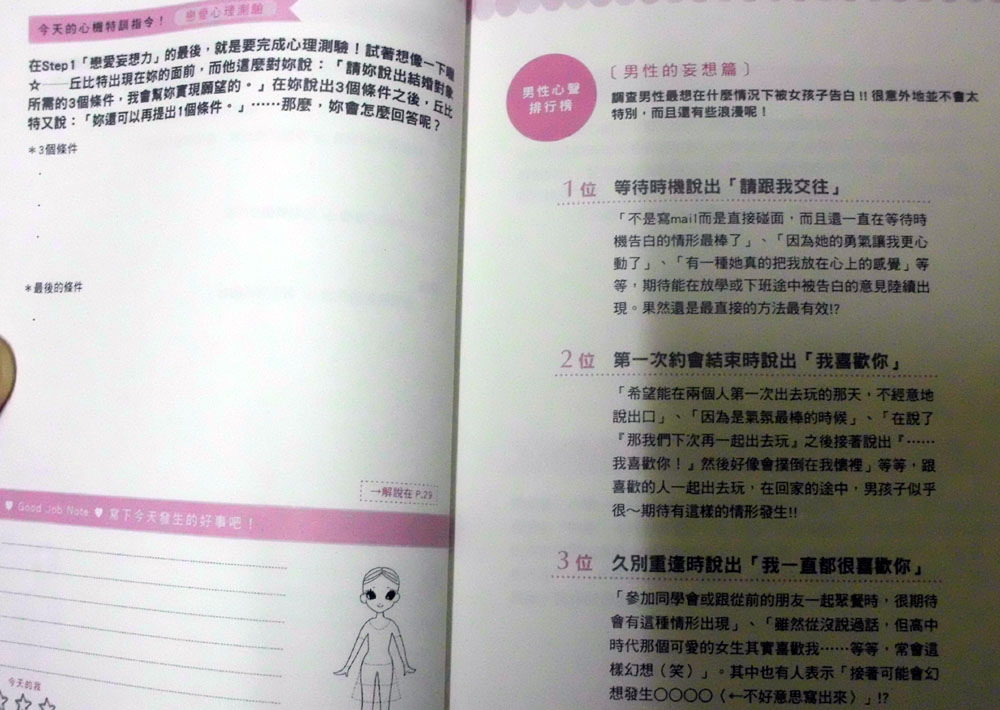 今天的心機特訓指令！ 戀愛心理測驗
在Step1「戀愛妄想力」的最後，就是要完成心理測驗！試著想像一下喔
☆——丘比特出現在妳的面前，而他這麼對妳說：「請妳說出結婚對象
所需的3個條件，我會幫妳實現願望的。」在妳說出3個條件之後，丘比
特又說：「妳還可以再提出1個條件。」……那麼，妳會怎麼回答呢？
＊3個條件
＊最後的條件
→解說在 P.29
♥ Good Job Note ♥ 寫下今天發生的好事吧！
今天的我
男性心聲
排行榜
〔男性的妄想篇〕
調查男性最想在什麼情況下被女孩子告白!!很意外地並不會太
特別，而且還有些浪漫呢！
1位 等待時機說出「請跟我交往」
「不是寫mail而是直接碰面，而且還一直在等待時
機告白的情形最棒了」、「因為她的勇氣讓我更心
動了」、「有一種她真的把我放在心上的感覺」等
等，期待能在放學或下班途中被告白的意見陸續出
現。果然還是最直接的方法最有效!?
2位 第一次約會結束時說出「我喜歡你」
「希望能在兩個人第一次出去玩的那天，不經意地
說出口」、「因為是氣氛最棒的時候」、「在說了
『那我們下次再一起出去玩』之後接著說出『……
我喜歡你！』然後好像會撲倒在我懷裡」等等，跟
喜歡的人一起出去玩，在回家的途中，男孩子似乎
很～期待有這樣的情形發生!!
3位 久別重逢時說出「我一直都很喜歡你」
「參加同學會或跟從前的朋友一起聚餐時，很期待
會有這種情形出現」、「雖然從沒說過話，但高中
時代那個可愛的女生其實喜歡我……等等，常會這
樣幻想（笑）」。其中也有人表示「接著可能會幻
想發生〇〇〇〇（←不好意思寫出來）」!?